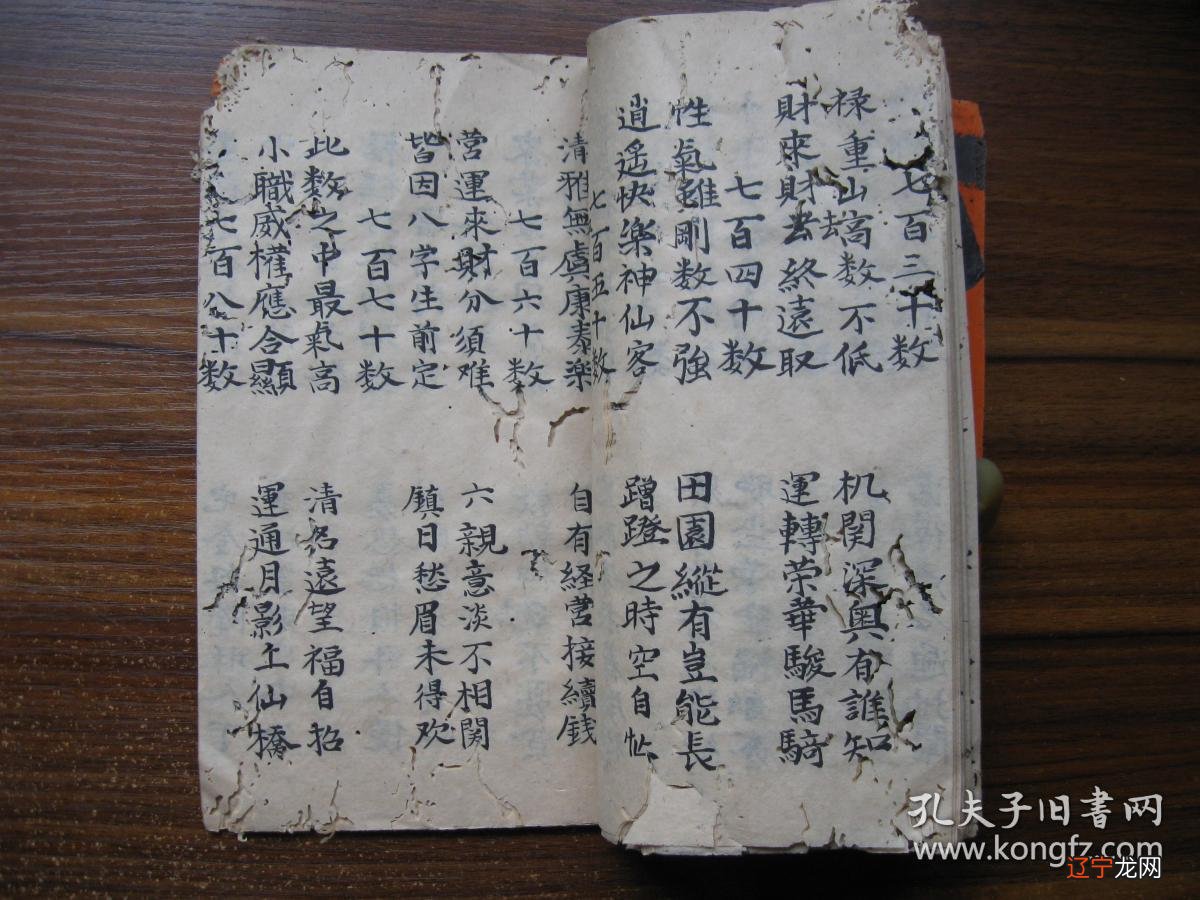 七百三十数
禄重山高数不低 机関深奥有誰知
財來財去終遠取 運轉荣華駿馬騎
七百四十数
性氣雖剛数不強 田園縱有豈能長
逍遥快樂神仙客 蹭蹬之時空自忙
七百五十数
清雅無虞康泰楽 自有経营接續钱
七百六十数
营運來財分须难 六親意淡不相関
皆因八字生前定 鎮日愁眉未得欢
七百七十数
此数之中最氣高 清名遠望福自招
小職威權應合顯 運通月影上仙橋
七百八十数
孔夫子旧書网
www.kongfz.com
辽宁龙网